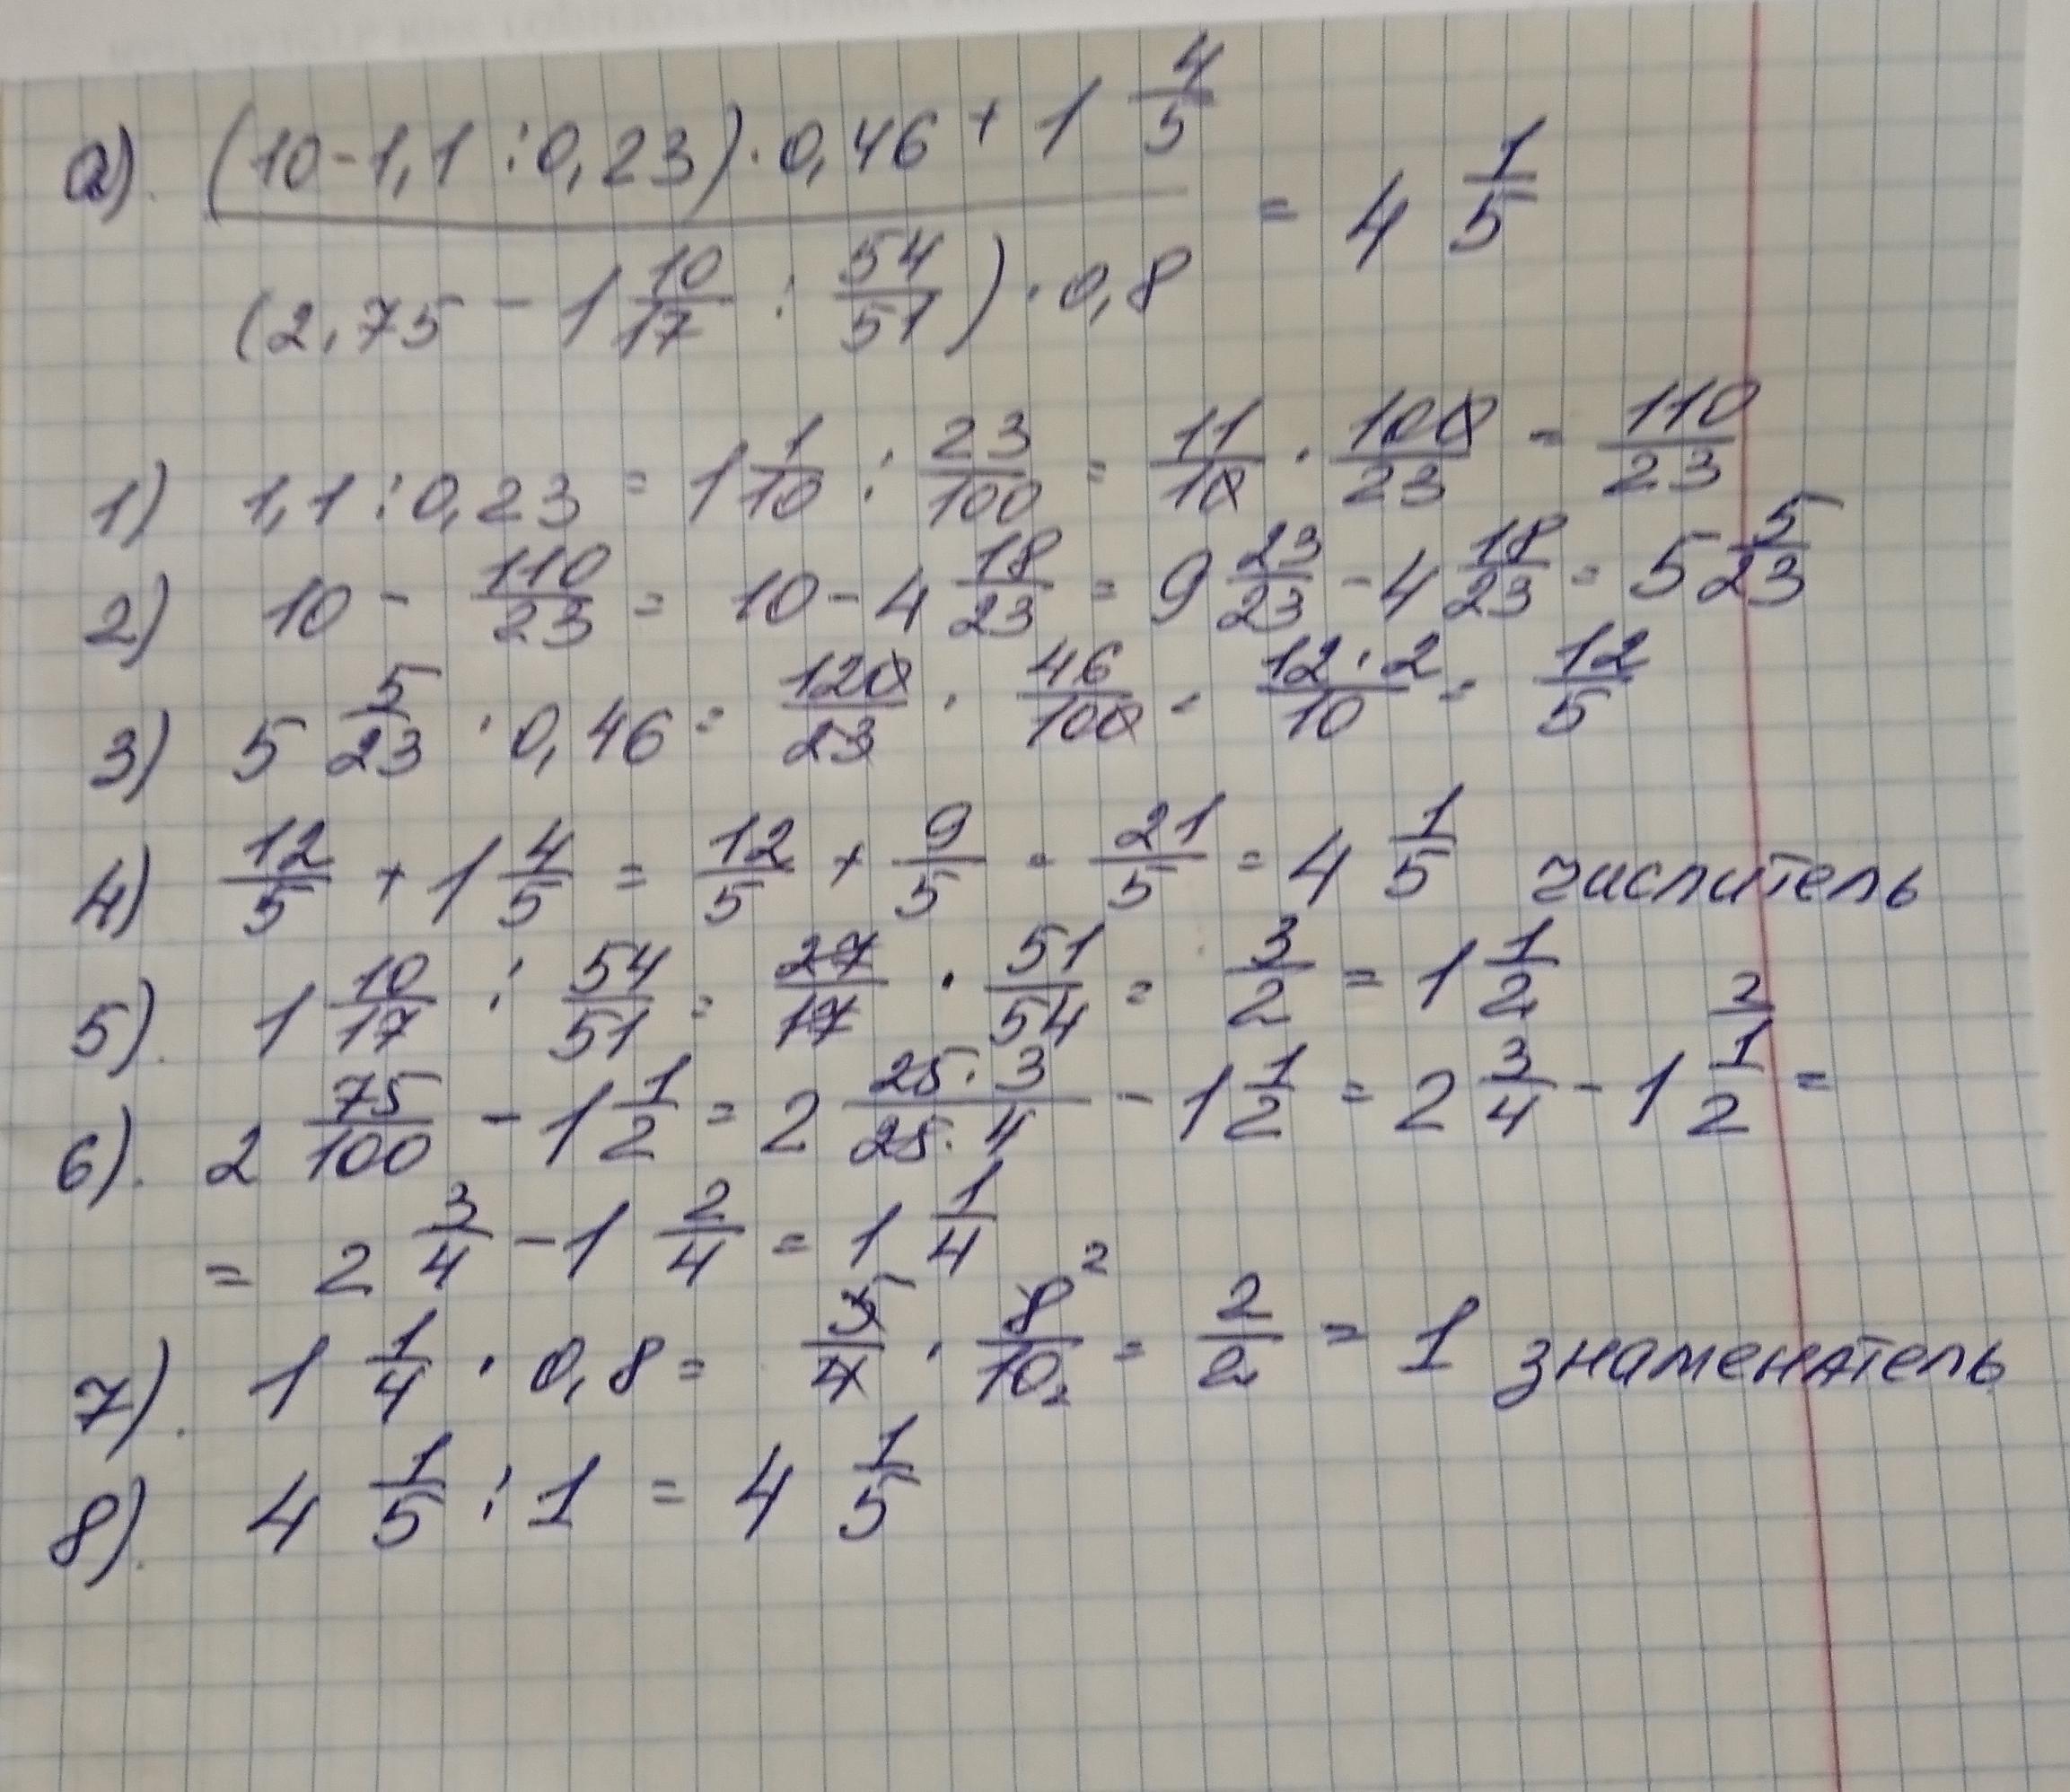 а). (10 - 1,1 : 0,23) · 0,46 + 1 4/5
= 4 1/5
(2,75 - 1 10/17 : 54/51) · 0,8
1) 1,1 : 0,23 = 1 1/10 : 23/100 = 11/10 · 100/23 = 110/23
2) 10 - 110/23 = 10 - 4 18/23 = 9 23/23 - 4 18/23 = 5 5/23
3) 5 5/23 · 0,46 = 120/23 · 46/100 = 12·2/10 = 12/5
4) 12/5 + 1 4/5 = 12/5 + 9/5 = 21/5 = 4 1/5 числитель
5). 1 10/17 : 54/51 = 27/17 · 51/54 = 3/2 = 1 1/2
6). 2 75/100 - 1 1/2 = 2 25·3/25·4 - 1 1/2 = 2 3/4 - 1 1/2 2 =
= 2 3/4 - 1 2/4 = 1 1/4
7). 1 1/4 · 0,8 = 5/4 · 8 2/10 2 = 2/2 = 1 знаменатель
8). 4 1/5 : 1 = 4 1/5